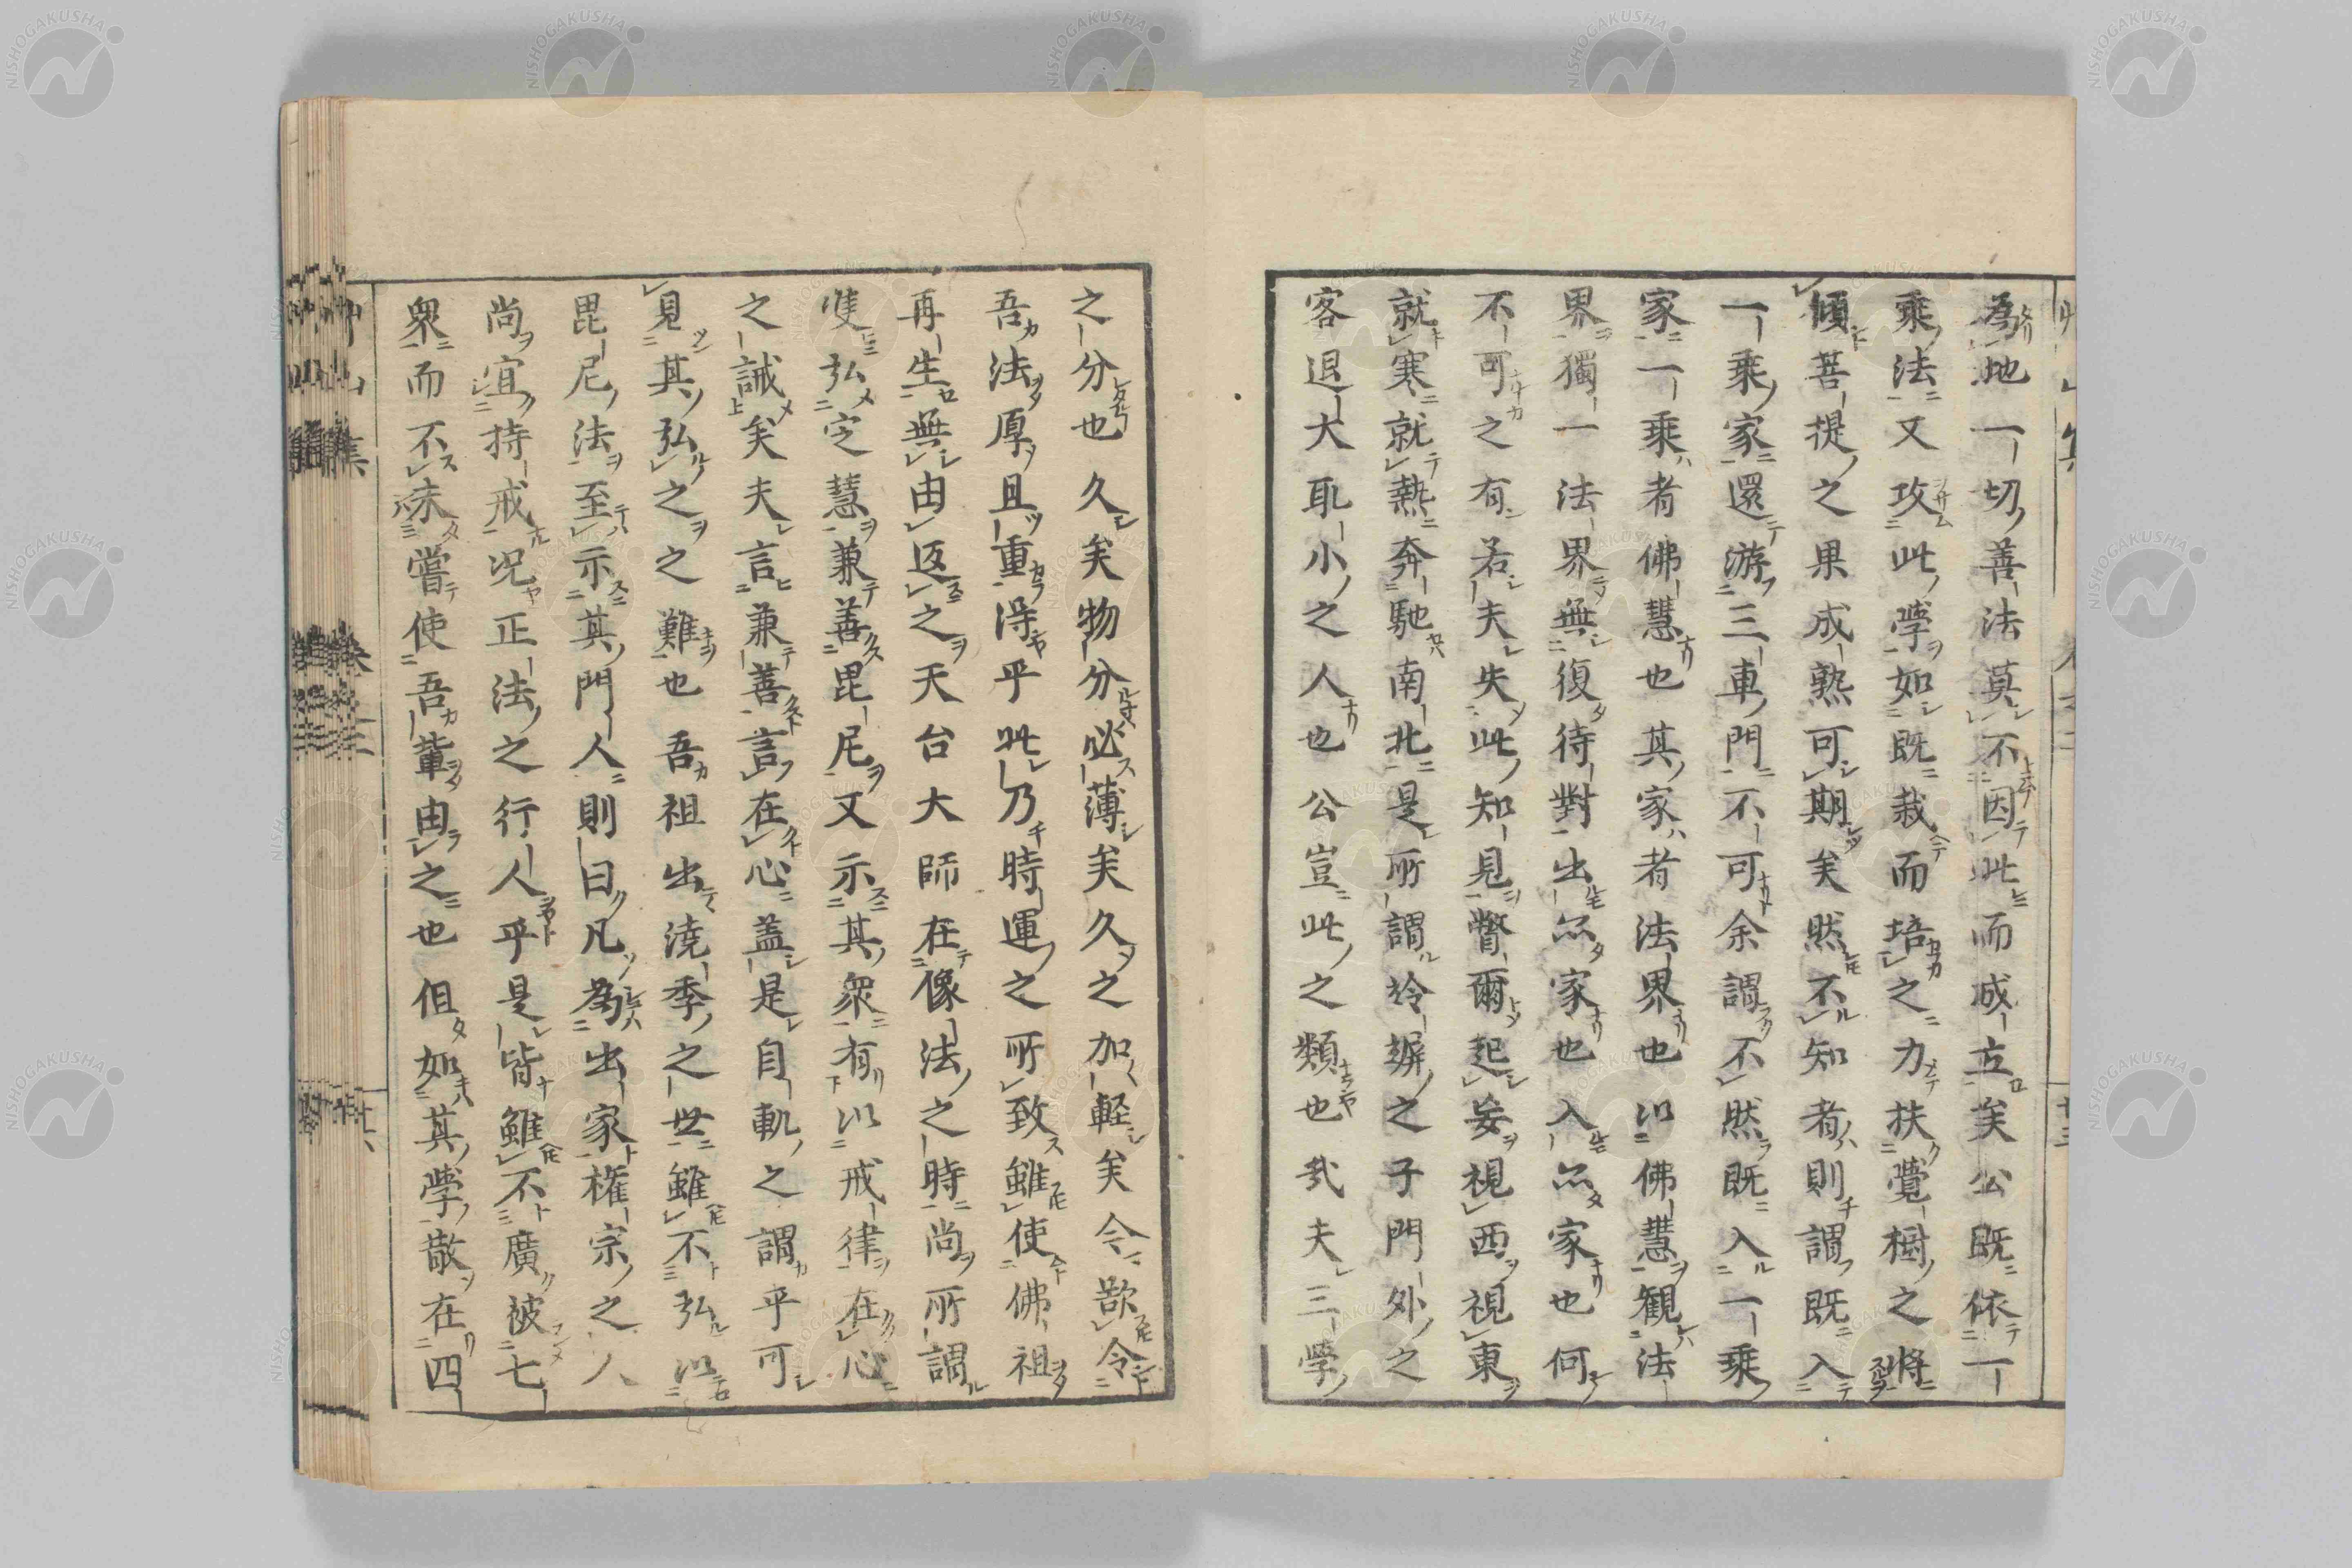 為地一切善法莫不因此而成立矣公既依一
乘法又攻此學如既栽而培之力扶覺樹之將
傾菩提之果成熟可期矣然不知者則謂既入
一乘家還游三車門不可余謂不然既入一乘
家一乘者佛慧也其家者法界也以佛慧観法
界獨一法界無復待對出亦家也入亦家也何
不可之有若夫失此知見瞥爾起妄視西視東
就寒就熱奔馳南北是所謂竛竮之子門外之
客退大耽小之人也公豈此之類也哉夫三學
之分也久矣物分必薄矣久之加輕矣今欲令
吾法厚且重得乎此乃時運之所致雖使佛祖
再生無由返之天台大師在像法之時尚所謂
雙弘定慧兼善毘尼又示其衆有以戒律在心
之誡矣夫言兼善言在心蓋是自軌之謂乎可
見其弘之之難也吾祖出澆季之世雖不弘以
毘尼法至示其門人則曰凡為出家權宗之人
尚宜持戒况正法之行人乎是皆雖不廣被七
衆而不未嘗使吾輩由之也但如其學散在四
NISHOGAKUSHA